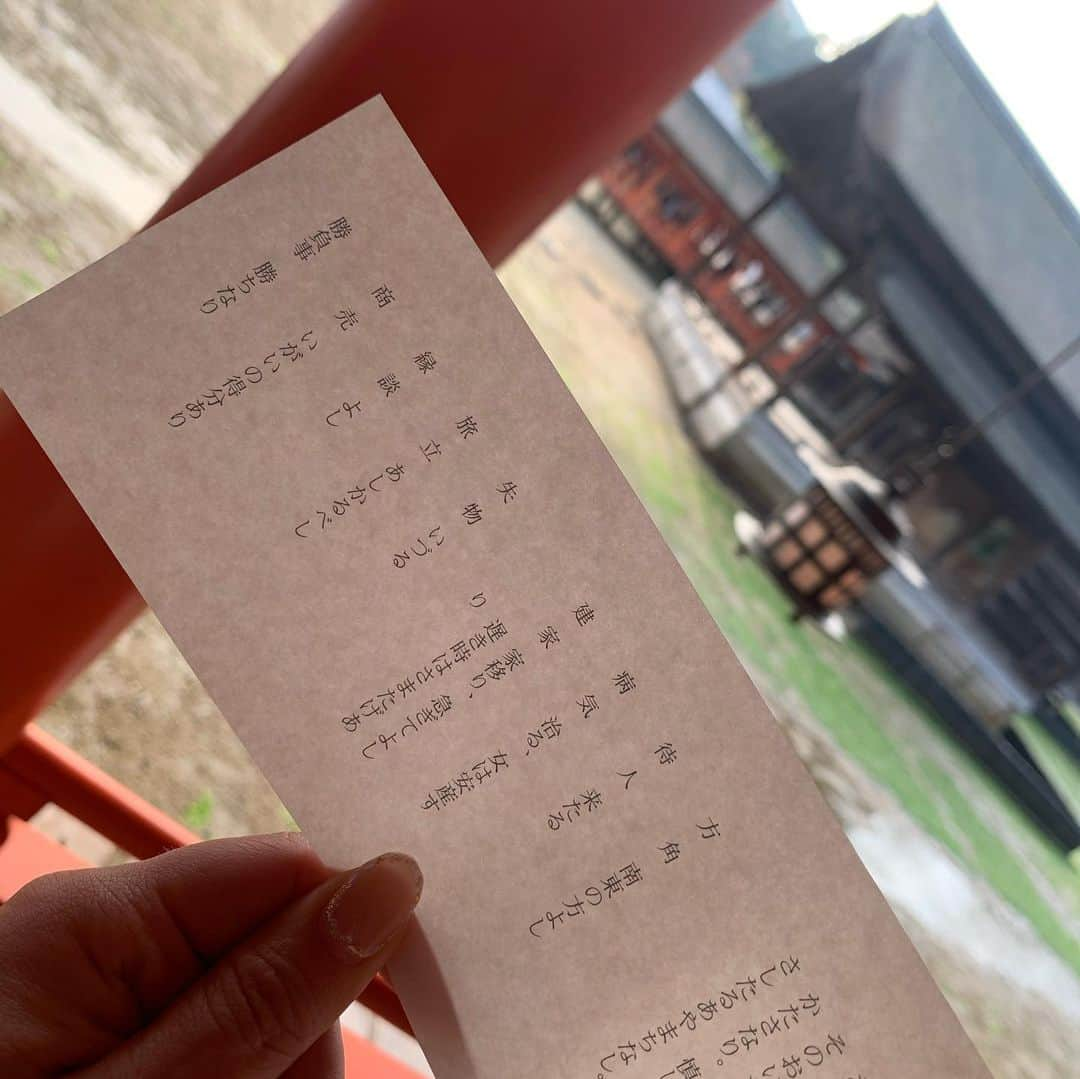 そのお
かたさなり。慎し
さしたるあやまちなし。
方角 南東の方よし
待人 来たる
病気 治る、女は安産す
建家 家移り、急ぎてよし
遅き時はさまたげあ
り
失物 いづる
旅立 あしかるべし
縁談 よし
商売 いがいの得分あり
勝負事 勝ちなり